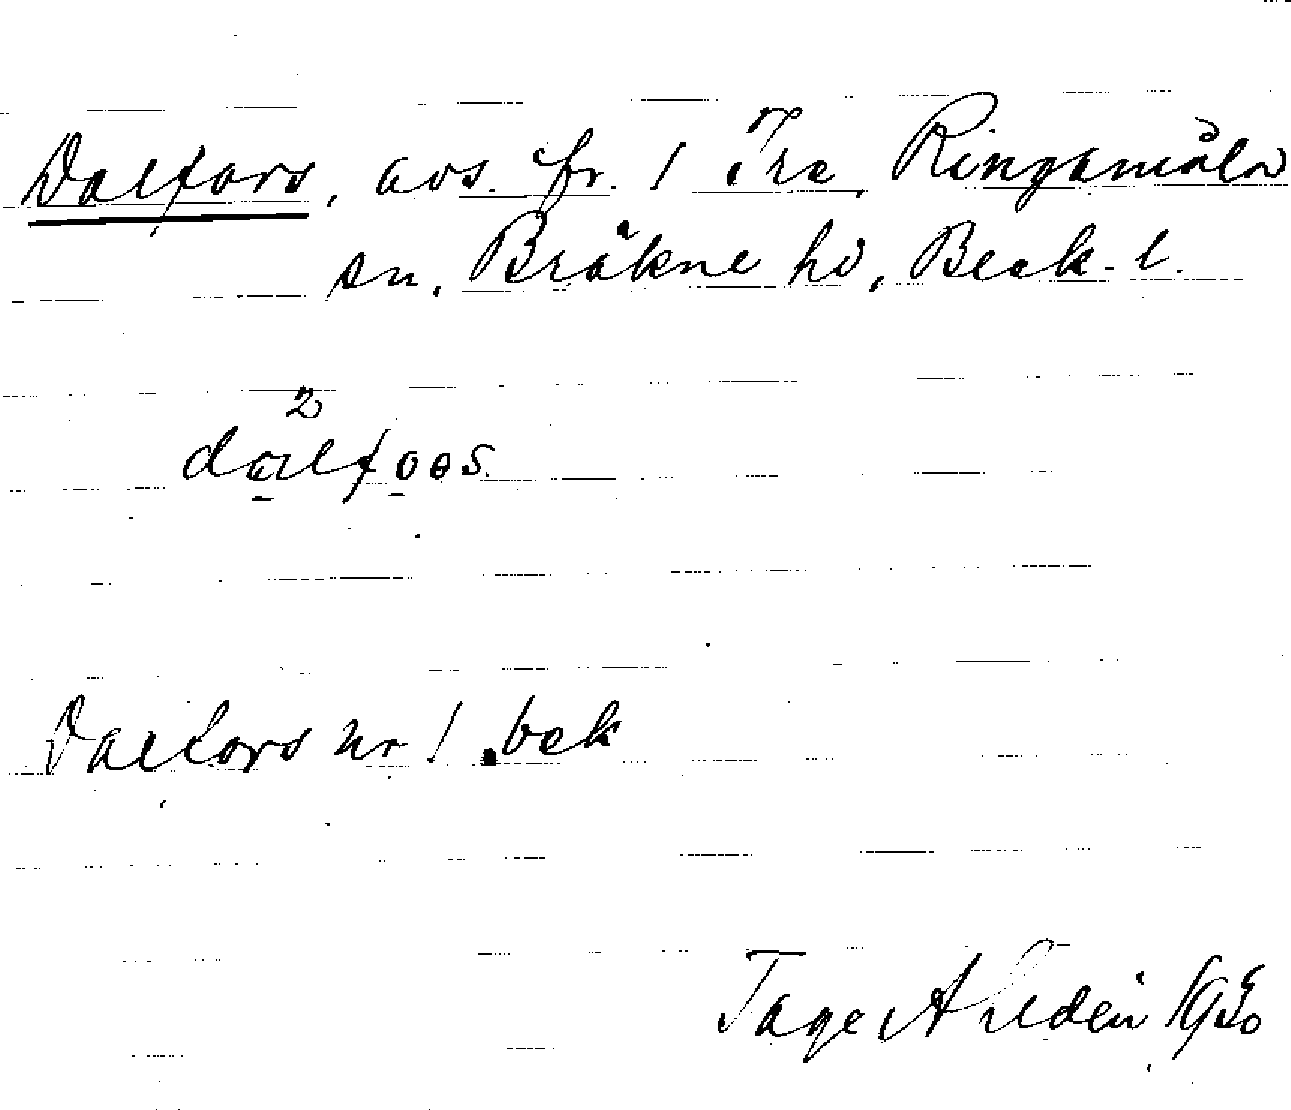 Dalfors, avs. fr. 1 Tre, Ringamåla
sn, Bräkne hd, Blek. l.
2
dalfoos
Dalfors nr 1 bek
Tage A 1930